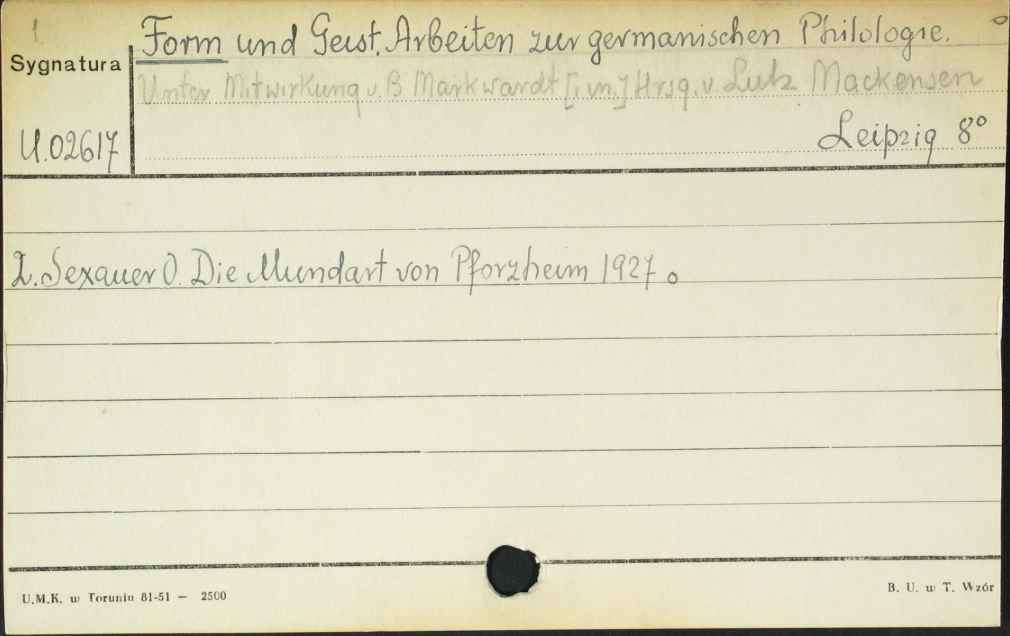 1
Form und Geist. Arbeiten zur germanischen Philologie.
Sygnatura
Unter Mitwirkung v. B Markwardt [i in.] Hrsg. v. Lutz Mackensen
U.02617
Leipzig 8°
2. Sexauer O. Die Mundart von Pforzheim 1927
U.M.K. w Toruniu 81-51 — 2500
B. U. w T. Wzór